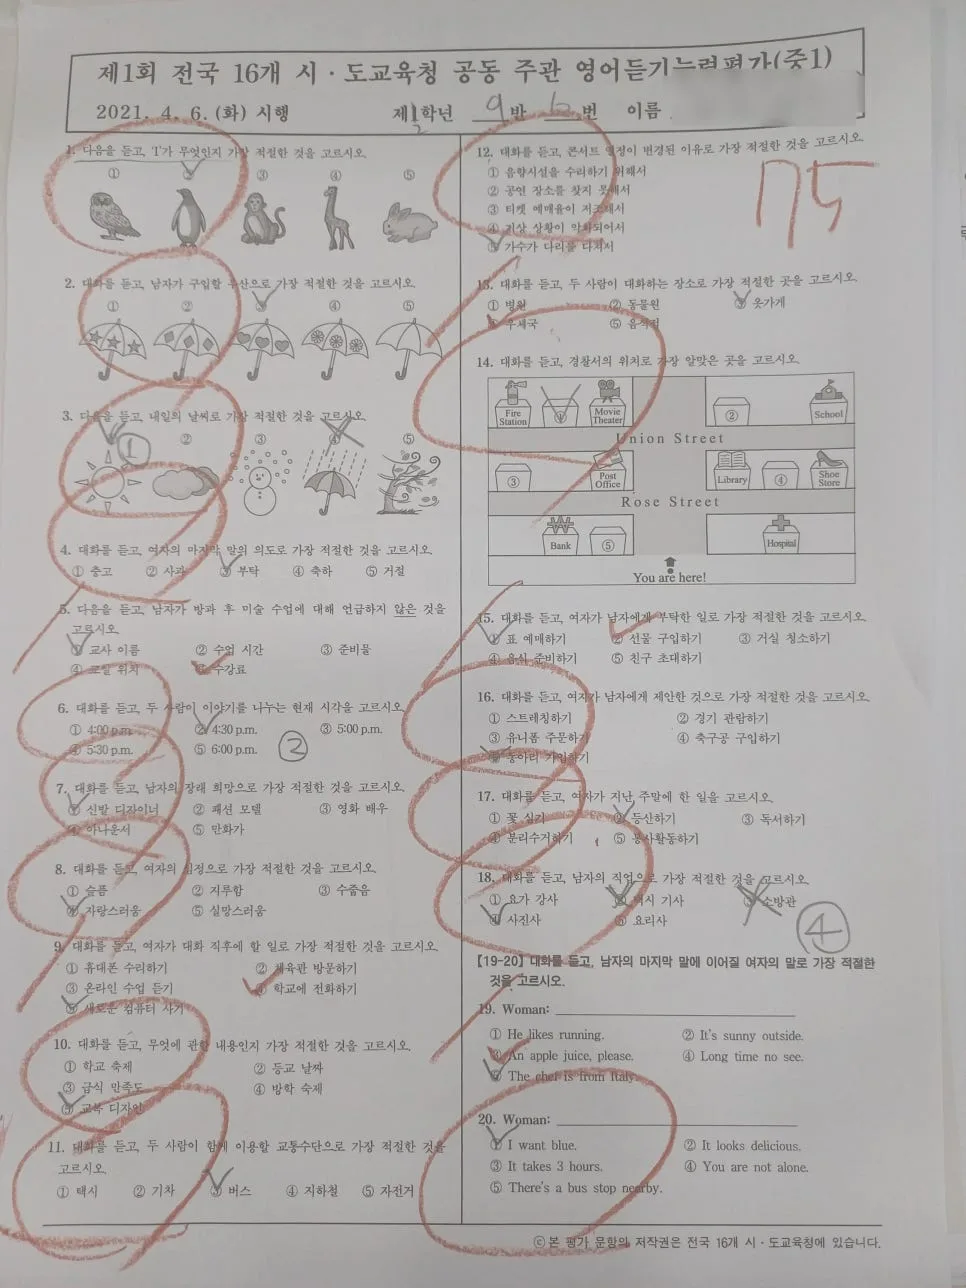 제1회 전국 16개 시·도교육청 공동 주관 영어듣기능력평가(중1)
2021. 4. 6.(화) 시행 제1학년 9반 6번 이름
2
75
1. 다음을 듣고, 'I'가 무엇인지 가장 적절한 것을 고르시오.
① ② ③ ④ ⑤
2. 대화를 듣고, 남자가 구입할 우산으로 가장 적절한 것을 고르시오.
① ② ③ ④ ⑤
3. 다음을 듣고, 내일의 날씨로 가장 적절한 것을 고르시오.
① ② ③ ④ ⑤
①
4. 대화를 듣고, 여자의 마지막 말의 의도로 가장 적절한 것을 고르시오.
① 충고 ② 사과 ③ 부탁 ④ 축하 ⑤ 거절
5. 다음을 듣고, 남자가 방과 후 미술 수업에 대해 언급하지 않은 것을
고르시오.
① 교사 이름 ② 수업 시간 ③ 준비물
④ 교실 위치 ⑤ 수강료
6. 대화를 듣고, 두 사람이 이야기를 나누는 현재 시각을 고르시오.
① 4:00 p.m. ② 4:30 p.m. ③ 5:00 p.m.
④ 5:30 p.m. ⑤ 6:00 p.m. ②
7. 대화를 듣고, 남자의 장래 희망으로 가장 적절한 것을 고르시오.
① 신발 디자이너 ② 패션 모델 ③ 영화 배우
④ 아나운서 ⑤ 만화가
8. 대화를 듣고, 여자의 심정으로 가장 적절한 것을 고르시오.
① 슬픔 ② 지루함 ③ 수줍음
④ 자랑스러움 ⑤ 실망스러움
9. 대화를 듣고, 여자가 대화 직후에 할 일로 가장 적절한 것을 고르시오.
① 휴대폰 수리하기 ② 체육관 방문하기
③ 온라인 수업 듣기 ④ 학교에 전화하기
⑤ 새로운 컴퓨터 사기
10. 대화를 듣고, 무엇에 관한 내용인지 가장 적절한 것을 고르시오.
① 학교 축제 ② 등교 날짜
③ 급식 만족도 ④ 방학 숙제
⑤ 교복 디자인
11. 대화를 듣고, 두 사람이 함께 이용할 교통수단으로 가장 적절한 것을
고르시오.
① 택시 ② 기차 ③ 버스 ④ 지하철 ⑤ 자전거
12. 대화를 듣고, 콘서트 일정이 변경된 이유로 가장 적절한 것을 고르시오.
① 음향시설을 수리하기 위해서
② 공연 장소를 찾지 못해서
③ 티켓 예매율이 저조해서
④ 기상 상황이 악화되어서
⑤ 가수가 다리를 다쳐서
13. 대화를 듣고, 두 사람이 대화하는 장소로 가장 적절한 곳을 고르시오.
① 병원 ② 동물원 ③ 옷가게
④ 우체국 ⑤ 음식점
14. 대화를 듣고, 경찰서의 위치로 가장 알맞은 곳을 고르시오.
Fire Station ① Movie Theater ② School
Union Street
③ Post Office Library ④ Shoe Store
Rose Street
Bank ⑤ Hospital
You are here!
15. 대화를 듣고, 여자가 남자에게 부탁한 일로 가장 적절한 것을 고르시오.
① 표 예매하기 ② 선물 구입하기 ③ 거실 청소하기
④ 음식 준비하기 ⑤ 친구 초대하기
16. 대화를 듣고, 여자가 남자에게 제안한 것으로 가장 적절한 것을 고르시오.
① 스트레칭하기 ② 경기 관람하기
③ 유니폼 주문하기 ④ 축구공 구입하기
⑤ 동아리 가입하기
17. 대화를 듣고, 여자가 지난 주말에 한 일을 고르시오.
① 꽃 심기 ② 등산하기 ③ 독서하기
④ 분리수거하기 ⑤ 봉사활동하기
18. 대화를 듣고, 남자의 직업으로 가장 적절한 것을 고르시오.
① 요가 강사 ② 택시 기사 ③ 소방관
④ 사진사 ⑤ 요리사 ④
【19-20】 대화를 듣고, 남자의 마지막 말에 이어질 여자의 말로 가장 적절한
것을 고르시오.
19. Woman:
① He likes running. ② It's sunny outside.
③ An apple juice, please. ④ Long time no see.
⑤ The chef is from Italy.
20. Woman:
① I want blue. ② It looks delicious.
③ It takes 3 hours. ④ You are not alone.
⑤ There's a bus stop nearby.
ⓒ본 평가 문항의 저작권은 전국 16개 시·도교육청에 있습니다.